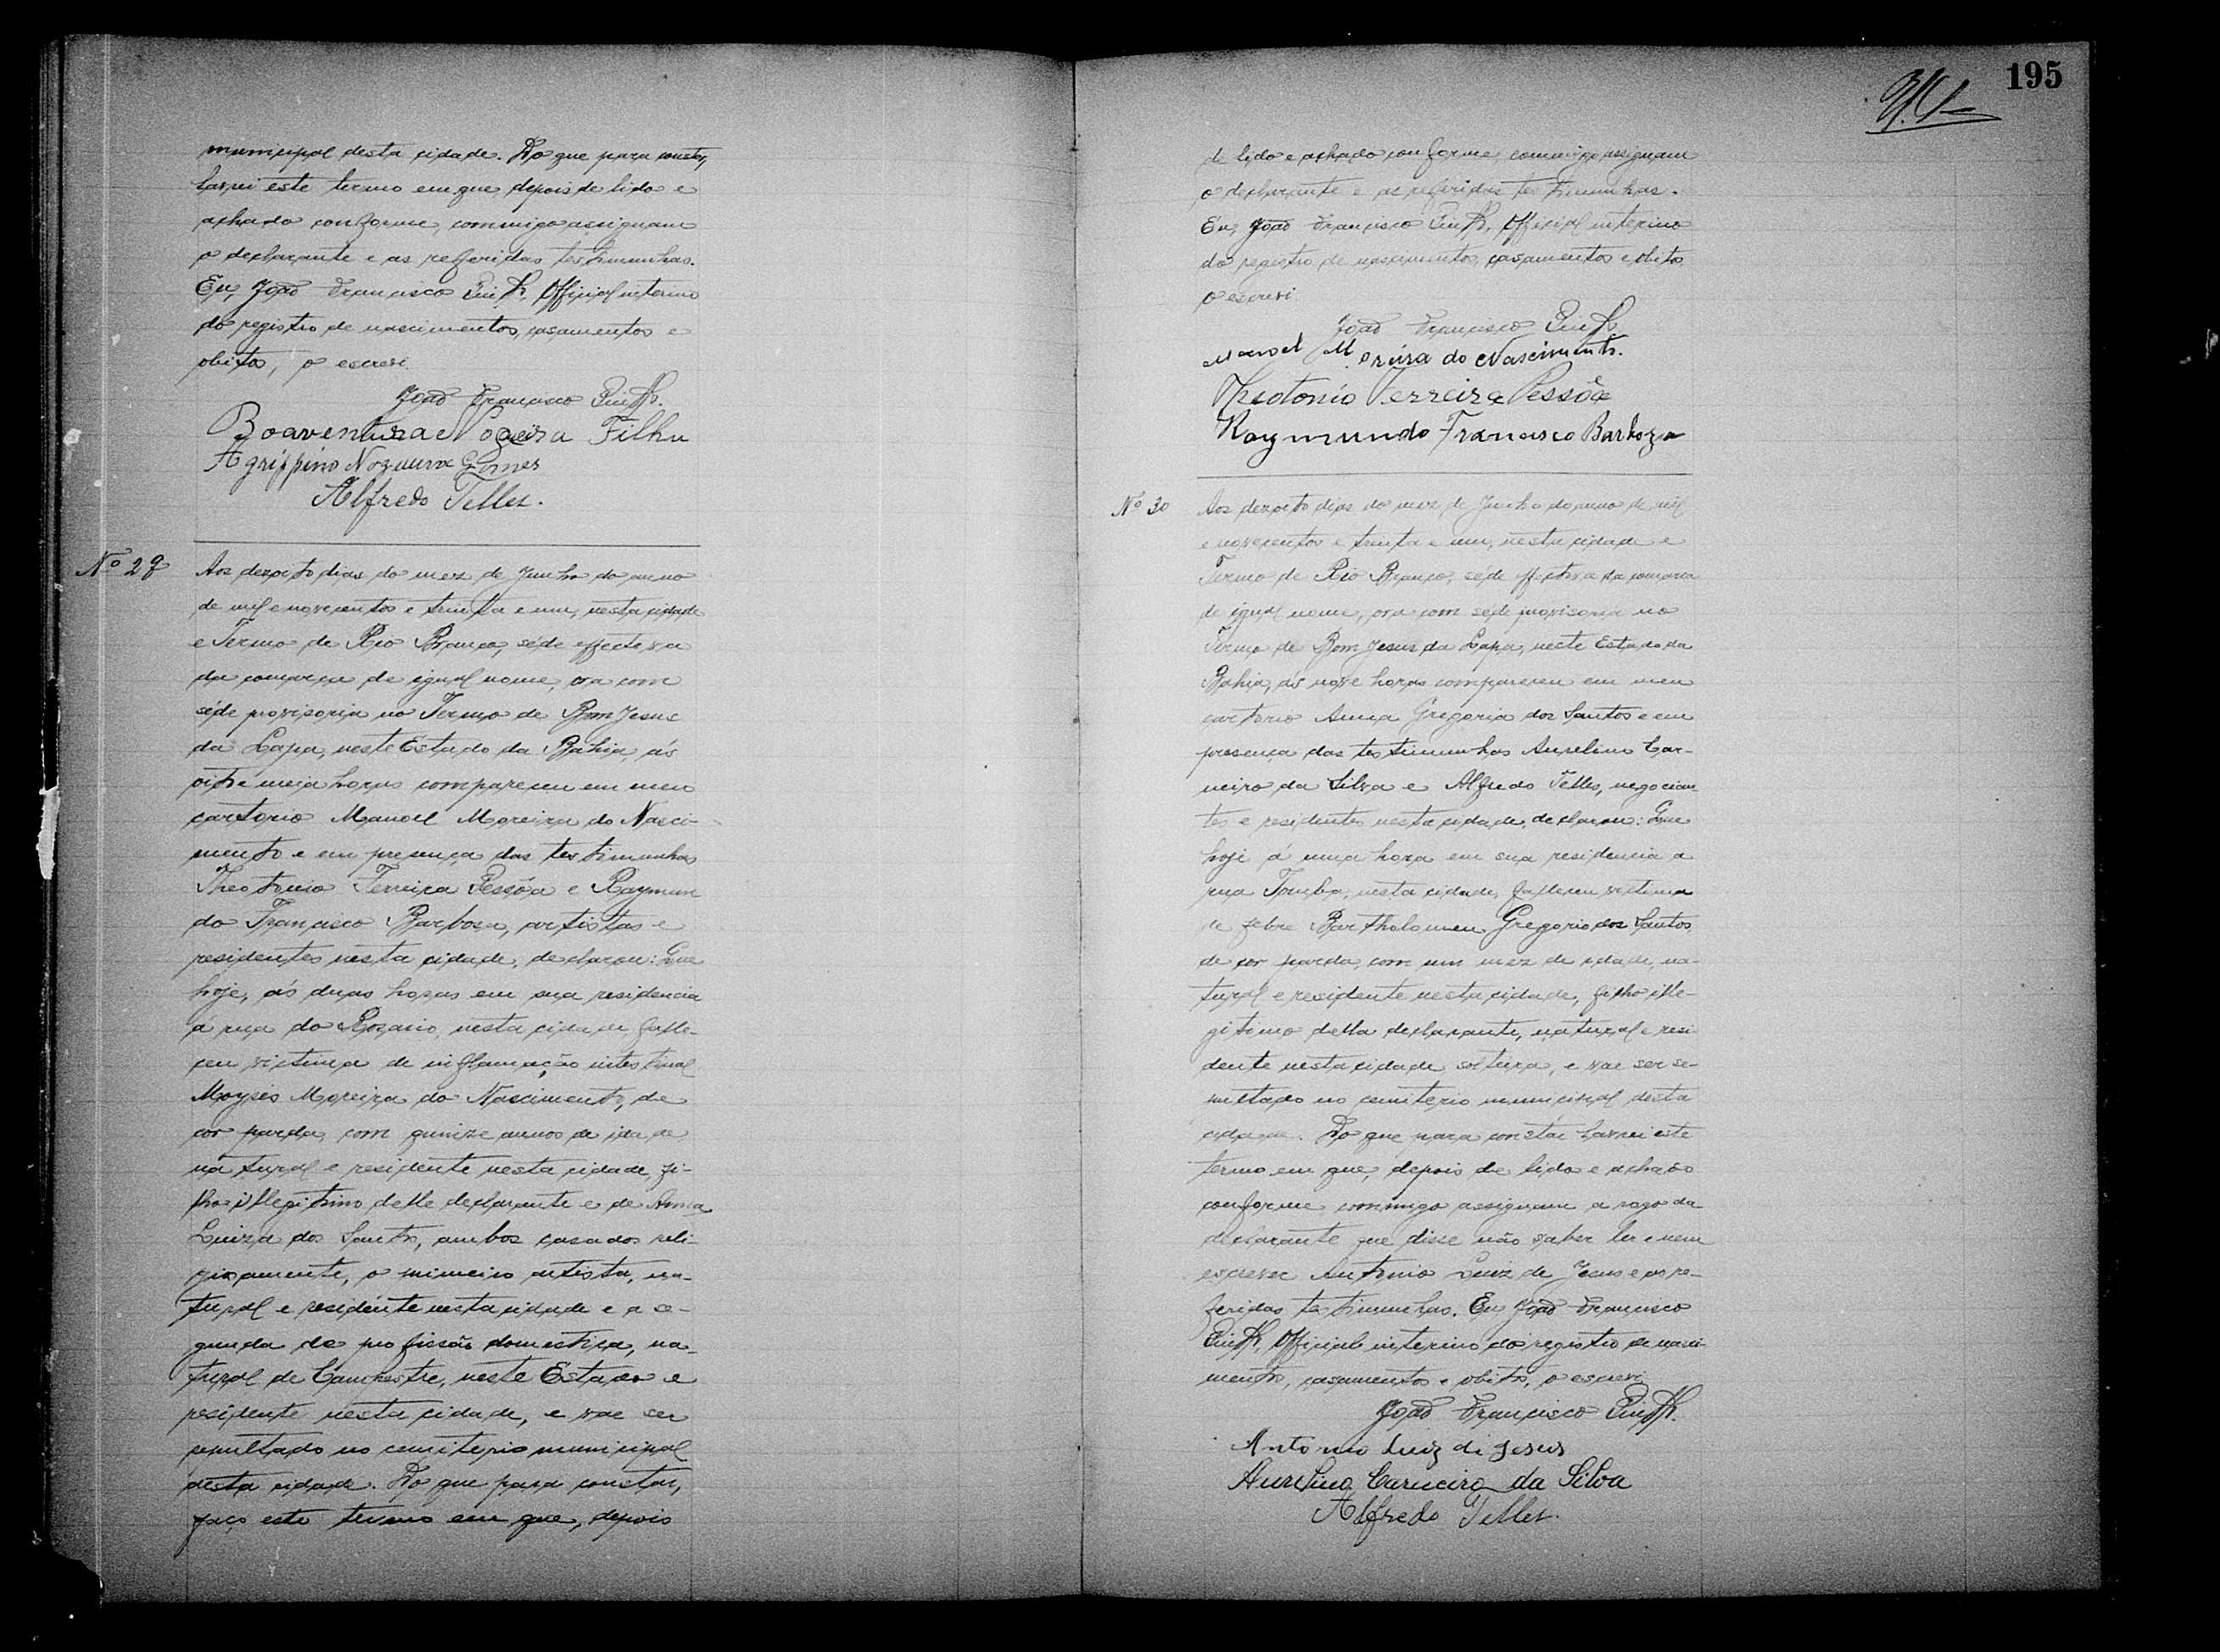 municipal desta cidade. Do que para constar,
lavrei este termo em que, depois de lido e
achado conforme, commigo assignam
o declarante e as referidas testimunhas.
Eu, João Francisco Official interino
do registro de nascimentos, casamentos e
obitos, o escrevi.
João Francisco
Boaventura Nogueira Filho
Agrippino Nogueira Gomes
Alfredo Telles.
Nº 29
Aos dezoito dias do mez de Junho do anno
de mil e novecentos e trinta e um, nesta cidade
e Termo de Rio Branco, séde effectiva
da comarca de igual nome, ora com
séde provisoria no Termo de Bom Jesus
da Lapa, neste Estado da Bahia, ás
oito e meia horas compareceu em meu
cartorio Manoel Moreira do Nasci-
mento e em presença das testimunhas
Theotonio Ferreira Pessôa e Raymun
do Francisco Barbosa, artistas e
residentes nesta cidade, declarou: Que
hoje, ás duas horas em sua residencia
á rua do Rozario, nesta cidade, falle-
ceu victima de inflamação intestinal
Moysés Moreira do Nascimento, de
cor parda, com quinze annos de idade
natural e residente nesta cidade, fi-
lho illegitimo delle declarante e de Anna
Luiza dos Santos, ambos casados reli-
giosamente, o primeiro artista, na-
tural e residente nesta cidade e a se-
gunda de profissão domestica, na-
tural de neste Estado e
residente nesta cidade, e vae ser
sepultado no cemiterio municipal
desta cidade. Do que para constar,
faço este termo em que, depois
195
de lido e achado conforme, commigo assignam
o declarante e as referidas testimunhas.
Eu, João Francisco Official interino
do registro de nascimentos, casamentos e obitos,
o escrevi.
João Francisco
Manoel Moreira do Nascimento.
Theotonio Ferreira Pessôa
Raymundo Francisco Barboza
Nº 30
Aos dezoito dias do mez de Junho do anno de mil
e novecentos e trinta e um, nesta cidade e
Termo de Rio Branco, séde effectiva da comarca
de igual nome, ora com séde provisoria no
Termo de Bom Jesus da Lapa, neste Estado da
Bahia, ás nove horas compareceu em meu
cartorio Anna Gregoria dos Santos e em
presença das testimunhas Aurelino Car-
neiro da Silva e Alfredo Telles, negocian
tes e residentes nesta cidade, declarou: Que
hoje á uma hora em sua residencia a
rua nesta cidade, falleceu victima
de febre Bartholomeu Gregorio dos Santos,
de cor parda, com um mez de idade, na-
tural e residente nesta cidade, filho ille-
gitimo della declarante, natural e resi-
dente nesta cidade, solteira, e vae ser se-
pultado no cemiterio municipal desta
cidade. Do que para constar lavrei este
termo em que, depois de lido e achado
conforme commigo assignam a rogo da
declarante que disse não saber ler e nem
escrever Antonio Luiz de Jesus e as re-
feridas testimunhas. Eu João Francisco
Official interino do registro de nasci-
mentos, casamentos e obitos, o escrevi
João Francisco
Antonio Luiz di Jesus
Aurelino Carneiro da Silva
Alfredo Telles.